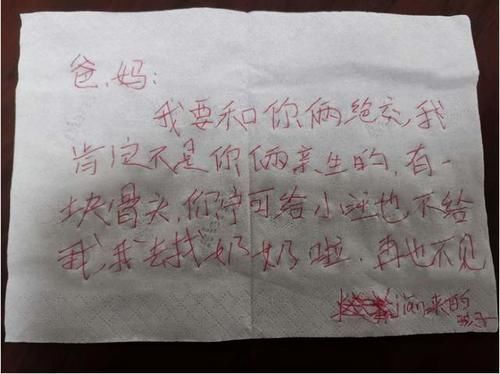 爸，妈：
我要和你俩绝交，我
肯定不是你俩亲生的，有一
块骨头，你们宁可给小旺也不给
我，我去找奶奶啦，再也不见
jian来的
孩子